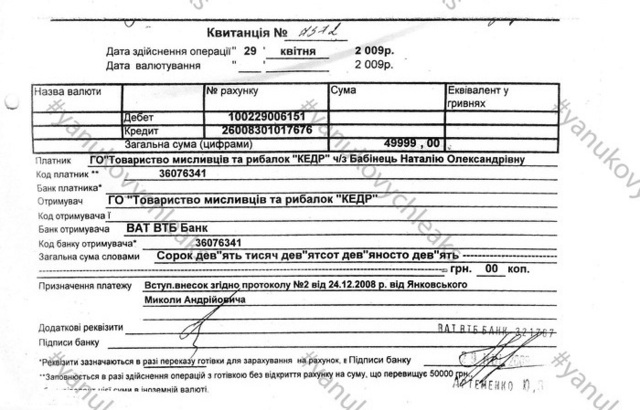 Квитанція №
Дата здійснення операції" 29 " квітня 2 009р.
Дата валютування " " 2 009р.
Назва валюти № рахунку Сума Еквівалент у гривнях
Дебет 100229006151
Кредит 26008301017676
Загальна сума (цифрами) 49999 , 00
Платник ГО"Товариство мисливців та рибалок "КЕДР" ч/з Бабінець Наталію Олександрівну
Код платник ** 36076341
Банк платника*
Отримувач ГО "Товариство мисливців та рибалок "КЕДР"
Код отримувача Ї
Банк отримувача ВАТ ВТБ Банк
Код банку отримувача* 36076341
Загальна сума словами Сорок дев"ять тисяч дев"ятсот дев"яносто дев"ять
грн. 00 коп.
Призначення платежу Вступ.внесок згідно протоколу №2 від 24.12.2008 р. від Янковського
Миколи Андрійовича
Додаткові реквізити
ВАТ ВТБ БАНК 321767
Підписи банку
*Реквізити зазначаються в разі переказу готівки для зарахування на рахунок, в Підписи банку
**Заповнюється в разі здійснення операцій з готівкою без відкриття рахунку на суму, що перевищує 50000 грн.
АРТЕМЕНКО Ю.
цієї суми в іноземній валюті.
#yanukovychleaks
#yanukovychleaks
#yanukovychleaks